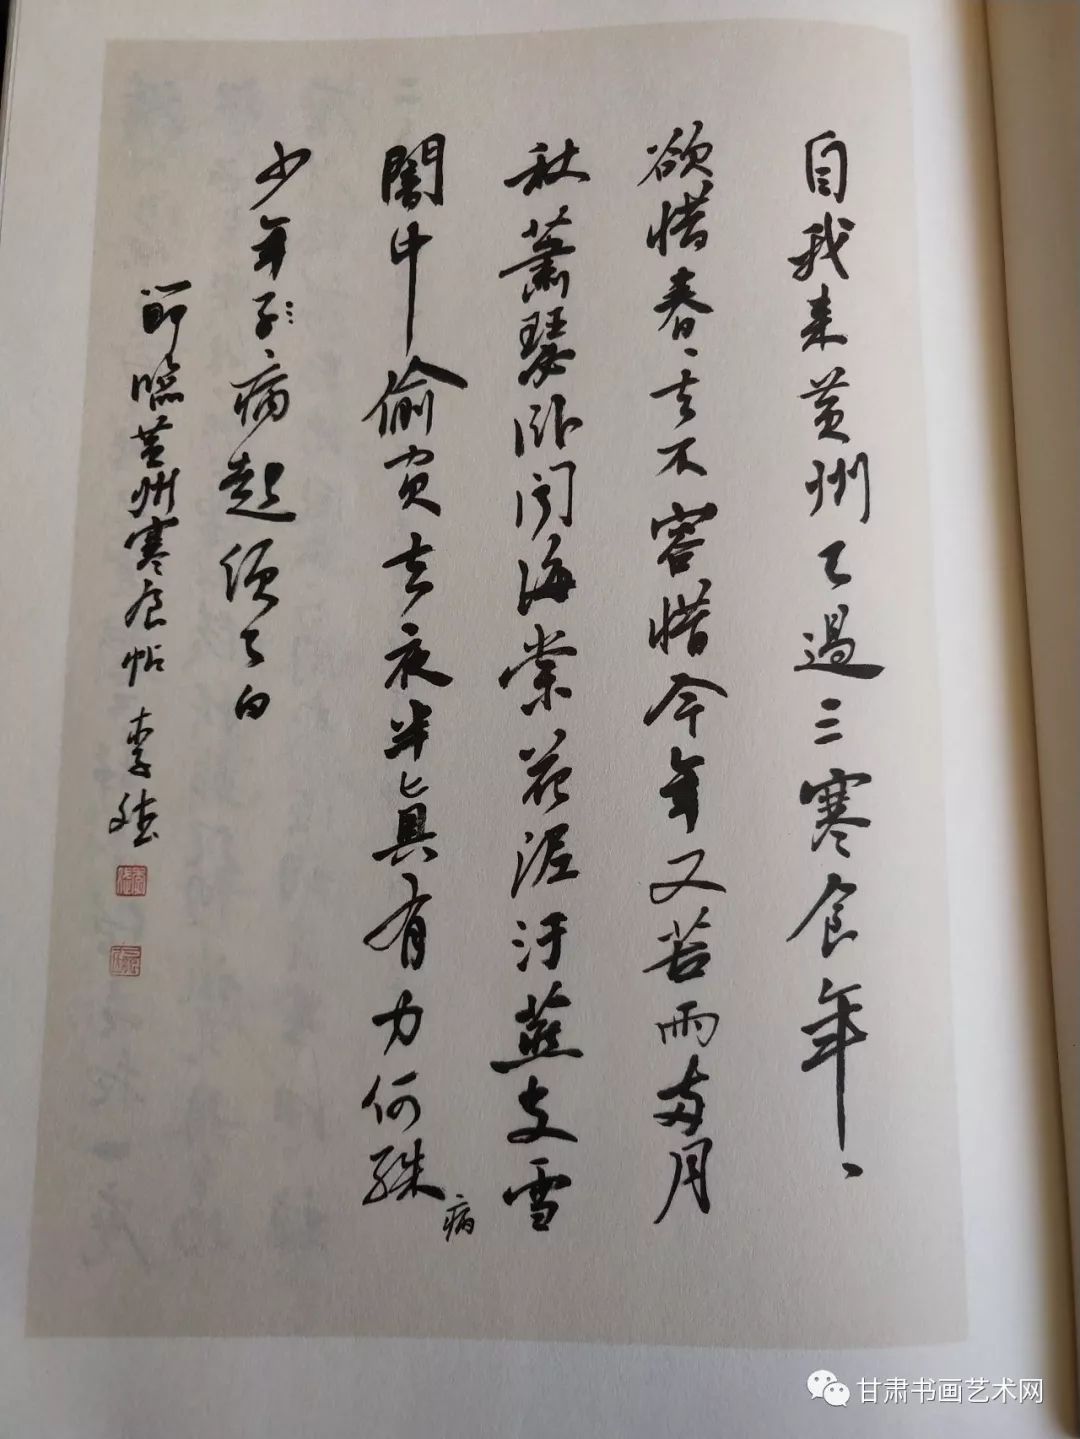 自我来黄州已過三寒食年、
欲惜春、去不容惜今年又苦雨兩月
秋蕭瑟卧聞海棠花泥汙燕支雪
闇中偷負去夜半真有力何殊
病
少年子病起須已白
節臨黄州寒食帖 李
甘肃书画艺术网